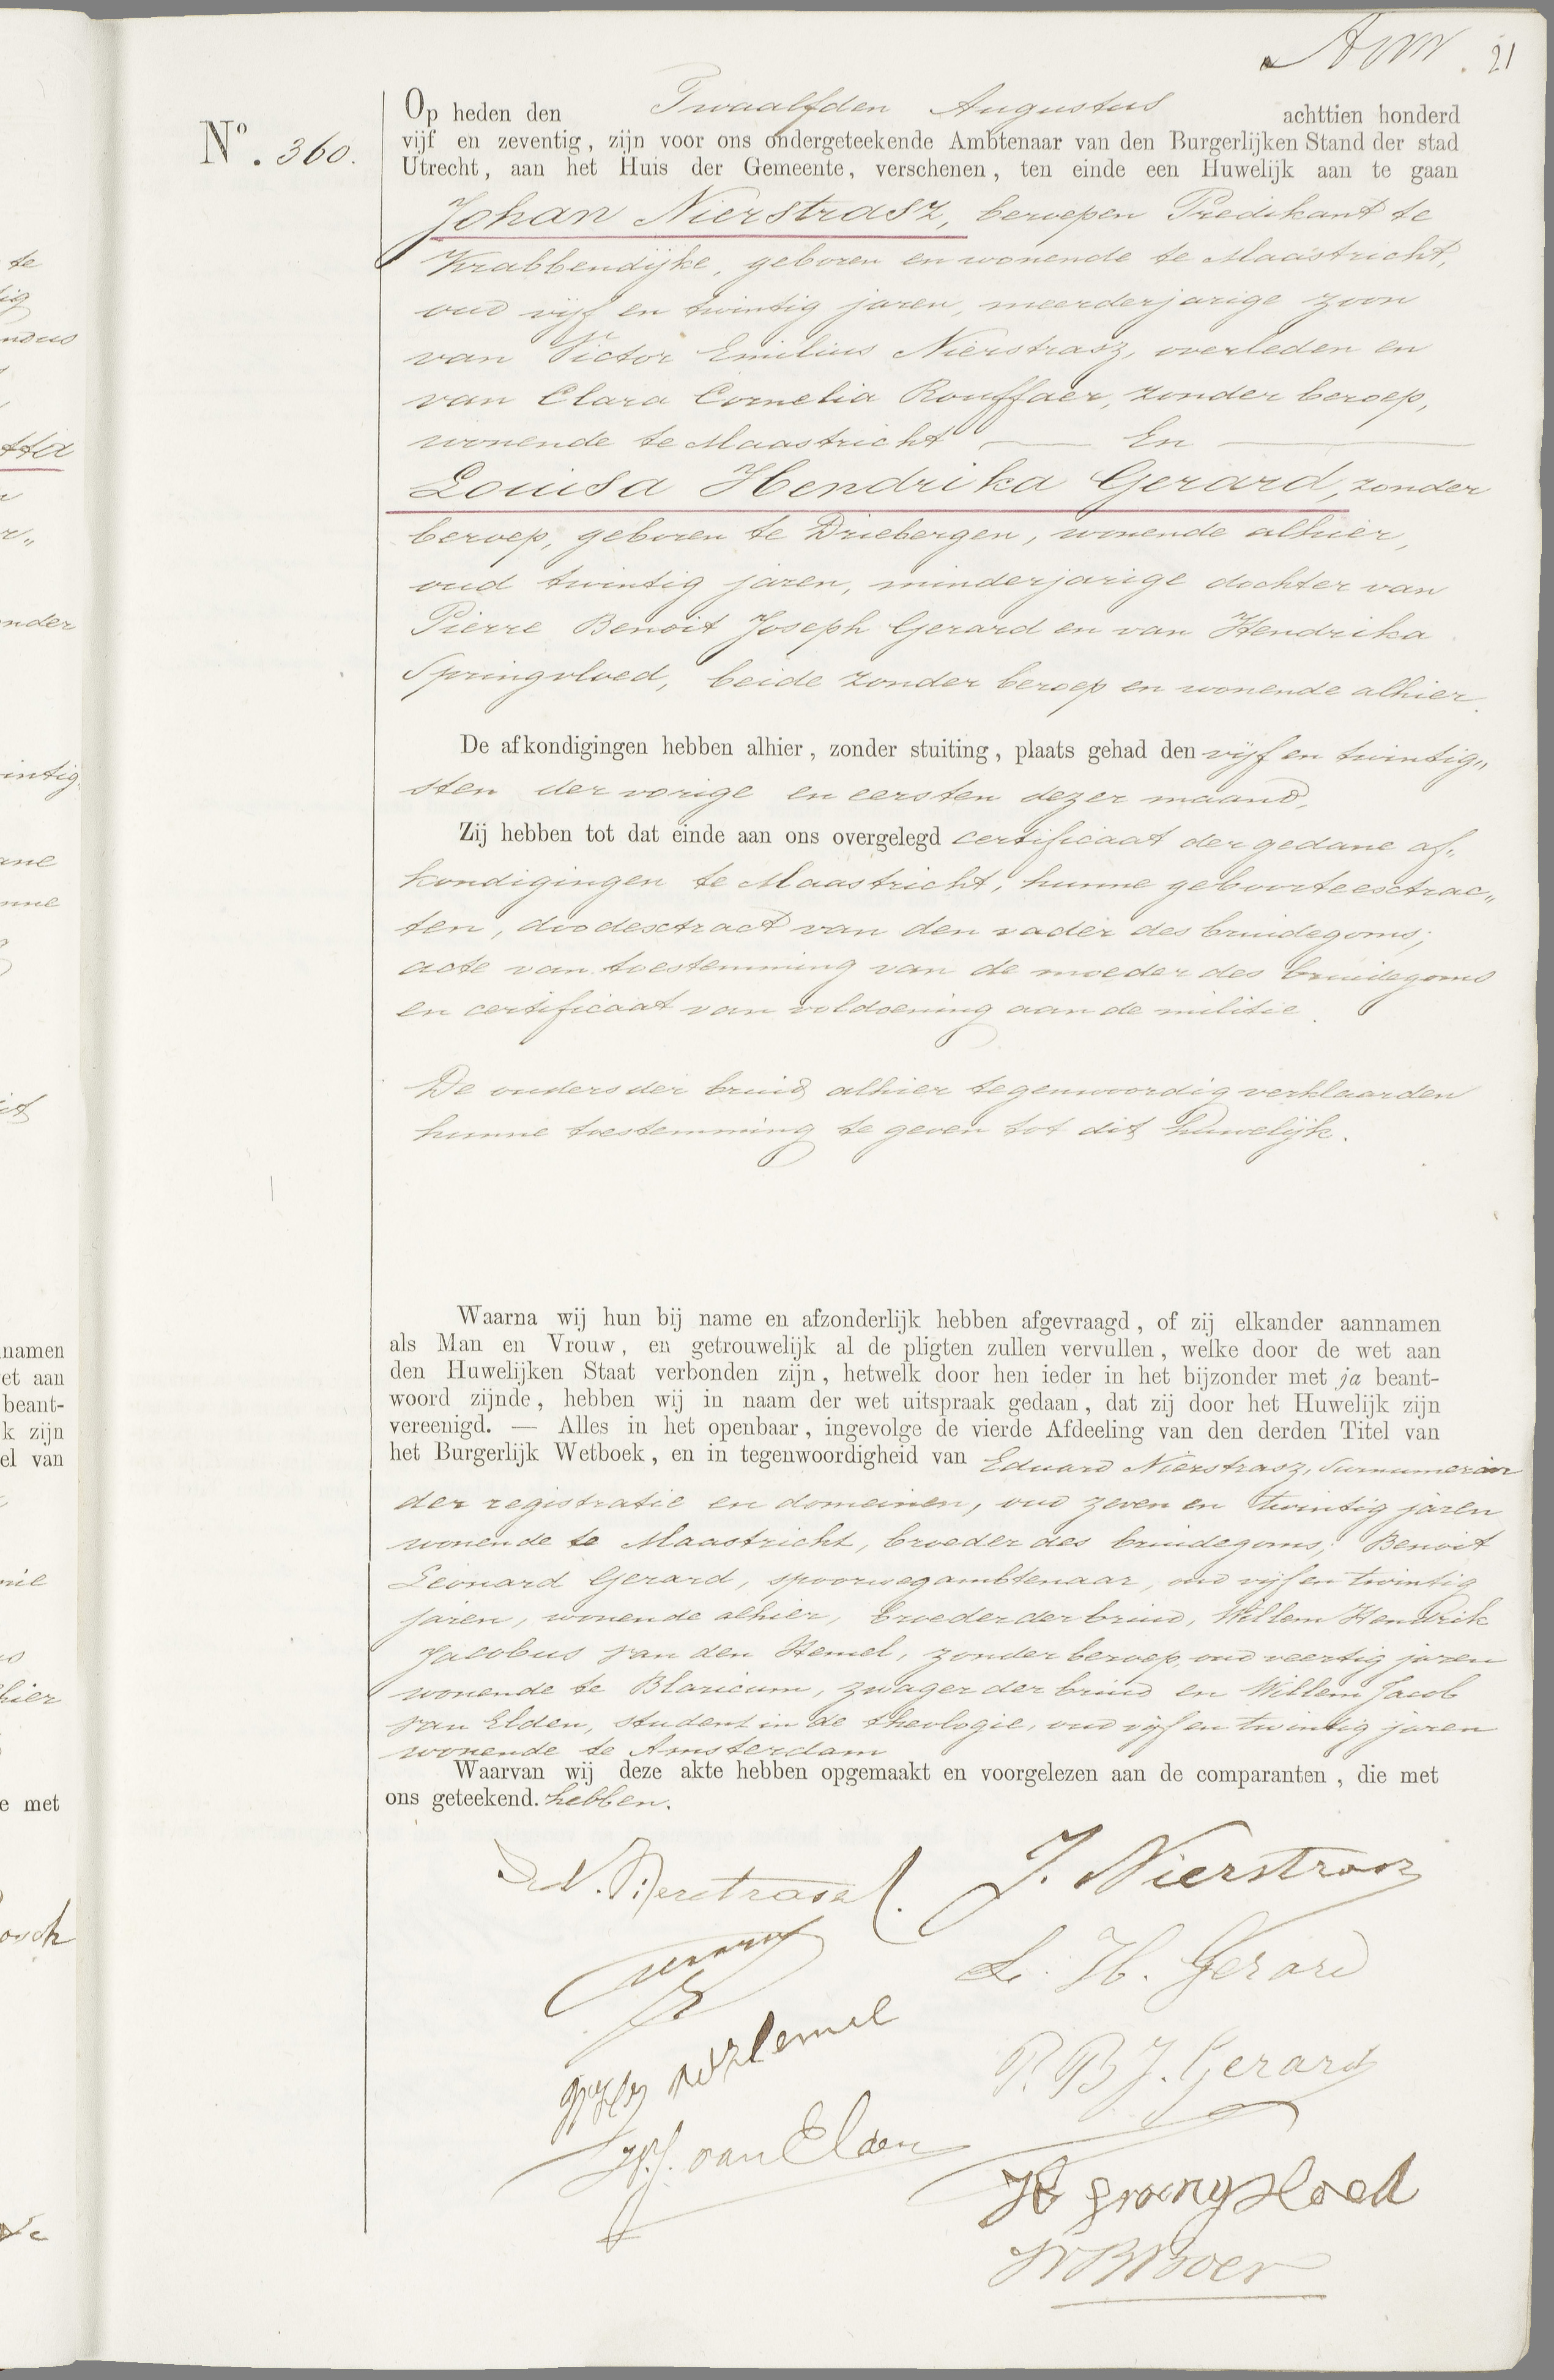 21
No. 360.
Op heden den Twaalfden Augustus achttien honderd
vijf en zeventig, zijn voor ons ondergeteekende Ambtenaar van den Burgerlijken Stand der stad
Utrecht, aan het Huis der Gemeente, verschenen, ten einde een Huwelijk aan te gaan
Johan Nierstrasz, beroepen Predikant te
Krabbendijke, geboren en wonende te Maastricht,
oud vijf en twintig jaren, meerderjarige zoon
van Victor Emilius Nierstrasz, overleden en
van Clara Cornelia Rouffaer, zonder beroep,
wonende te Maastricht — En —
Louisa Hendrika Gerard, zonder
beroep, geboren te Driebergen, wonende alhier,
oud twintig jaren, minderjarige dochter van
Pierre Benoit Joseph Gerard en van Hendrika
Springvloed, beide zonder beroep en wonende alhier.
De afkondigingen hebben alhier, zonder stuiting, plaats gehad den vijf en twintig„
sten der vorige en eersten dezer maand.
Zij hebben tot dat einde aan ons overgelegd certificaat der gedane af„
kondigingen te Maastricht, hunne geboorteextrac„
ten, doodextract van den vader des bruidegoms;
acte van toestemming van de moeder des bruidegoms
en certificaat van voldoening aan de militie.
De ouders der bruid alhier tegenwoordig verklaarden
hunne toestemming te geven tot dit huwelijk.
Waarna wij hun bij name en afzonderlijk hebben afgevraagd, of zij elkander aannamen
als Man en Vrouw, en getrouwelijk al de pligten zullen vervullen, welke door de wet aan
den Huwelijken Staat verbonden zijn, hetwelk door hen ieder in het bijzonder met ja beant-
woord zijnde, hebben wij in naam der wet uitspraak gedaan, dat zij door het Huwelijk zijn
vereenigd. — Alles in het openbaar, ingevolge de vierde Afdeeling van den derden Titel van
het Burgerlijk Wetboek, en in tegenwoordigheid van Eduard Nierstrasz, Surnumerair
der registratie en domeinen, oud zeven en twintig jaren
wonende te Maastricht, broeder des bruidegoms, Benoit
Leonard Gerard, spoorwegambtenaar, oud vijf en twintig
jaren, wonende alhier, broeder der bruid, Willem Hendrik
Jacobus van den Hemel, zonder beroep, oud veertig jaren
wonende te Blaricum, zwager der bruid en Willem Jacob
van Elden, student in de theologie, oud vijf en twintig jaren
wonende te Amsterdam
Waarvan wij deze akte hebben opgemaakt en voorgelezen aan de comparanten, die met
ons geteekend. hebben.
Nierstrasz J. Nierstrasz
Gerard L. H. Gerard
Hemel P. B J. Gerard
W.J. van Elden
H Springvloed
Boer